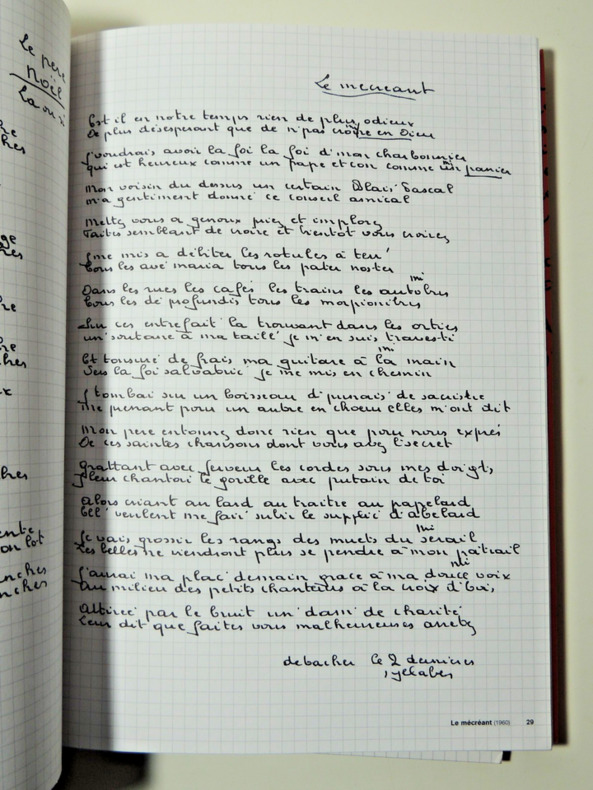 Le père
Noël
La ou si
Le mécréant
Est il en notre temps rien de plus odieux
De plus désesperant que de n'pas croire en Dieu
J'voudrais avoir la foi la foi d'mon charbonnier
qui est heureux comme un pape et con comme un panier
mi
Mon voisin du dessus un certain Blais' Pascal
m'a gentiment donné ce conseil amical
Mettez vous a genoux priez et implorez
Faites semblant de croire et bientot vous croirez
J'me mis a débiter les rotules à terr'
Tous les avé maria tous les pater noster
mi
Dans les rues les cafés les trains les autobus
Tous les dé profundis tous les morpionibus
Sur ces entrefait' la trouvant dans les orties
un' soutane à ma taille je m'en suis travesti
mi
Et tonsuré de frais ma guitare à la main
Vers la foi salvatric' je me mis en chemin
J'tombai sur un boisseau d'punais' de sacristie
Me prenant pour un autre en choeur elles m'ont dit
Mon pere entonnez donc rien que pour nous expres
De ces saintes chansons dont vous avez l'secret
Grattant avec ferveur les cordes sous mes doigts,
J'leur chantai le gorille avec putain de toi
Alors criant au lard au traitre au papelard
Ell' veulent me fair' subir le supplic' d'abelard
mi
Je vais grossir les rangs des muets du serail
Les belles ne viendront plus se pendre à mon poitrail
mi
J'aurai ma plac' demain grace à ma douce voix
Au milieu des petits chanteurs à la croix d'boi,
Attirée par le bruit un' dam' de charité
Leur dit que faites vous malheureuses arretez
debacher le 2 dernieres
syllabes
Le mécréant (1960) 29